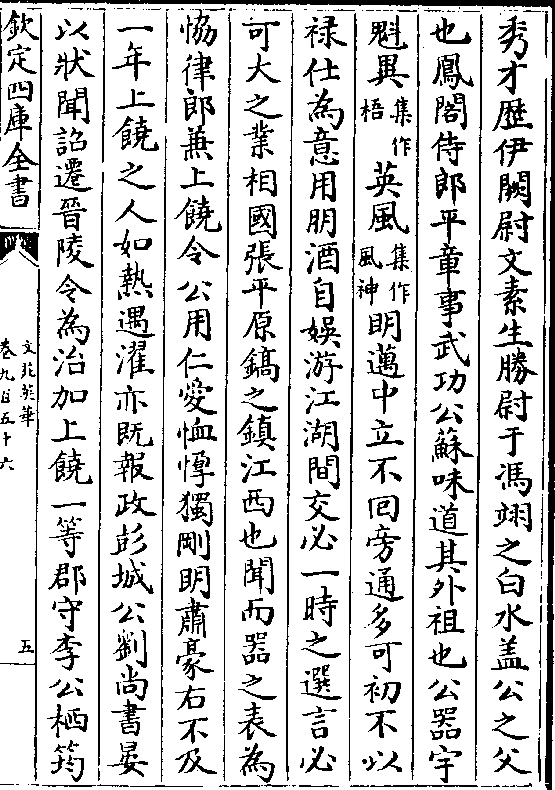 秀才歴伊闕尉文素生勝尉于馮翊之白水盖公之父
也鳳閣侍郎平章事武功公蘇味道其外祖也公器宇
魁異集作梧英風集作風神明邁中立不回旁通多可初不以
禄仕為意用朋酒自娛游江湖間交必一時之選言必
可大之業相國張平原鎬之鎮江西也聞而器之表為
恊律郎兼上饒令公用仁愛恤惸獨剛明肅豪右不及
一年上饒之人如熱遇濯亦既報政彭城公劉尚書晏
以狀聞詔遷晉陵令為治加上饒一等郡守李公栖筠
欽定四庫全書
文苑英華
卷九百五十六
五